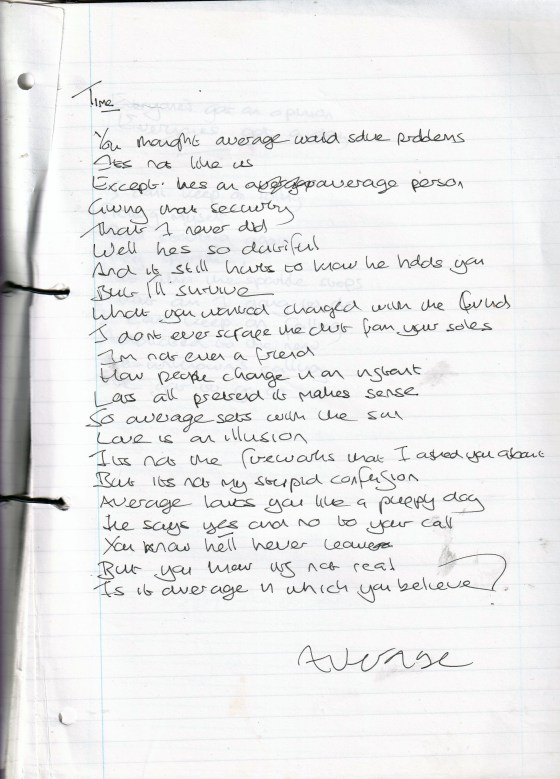 Time
You thought average would solve problems
Its not like us
Except hes an average person
Giving that security
That I never did
Well hes so dutiful
And it still hurts to know he holds you
But I'll survive
What you wanted changed with the
I dont ever scrape the dirt from your soles
I'm not even a friend
How people change in an instant
Lets all pretend it makes sense
So average sets with the sun
Love is an illusion
Its not the fireworks that I asked you about
But its not my stupid confusion
Average loves you like a puppy dog
He says yes and no to your call
You know he'll never leave
But you know its not real
Is it average in which you believe?
Average